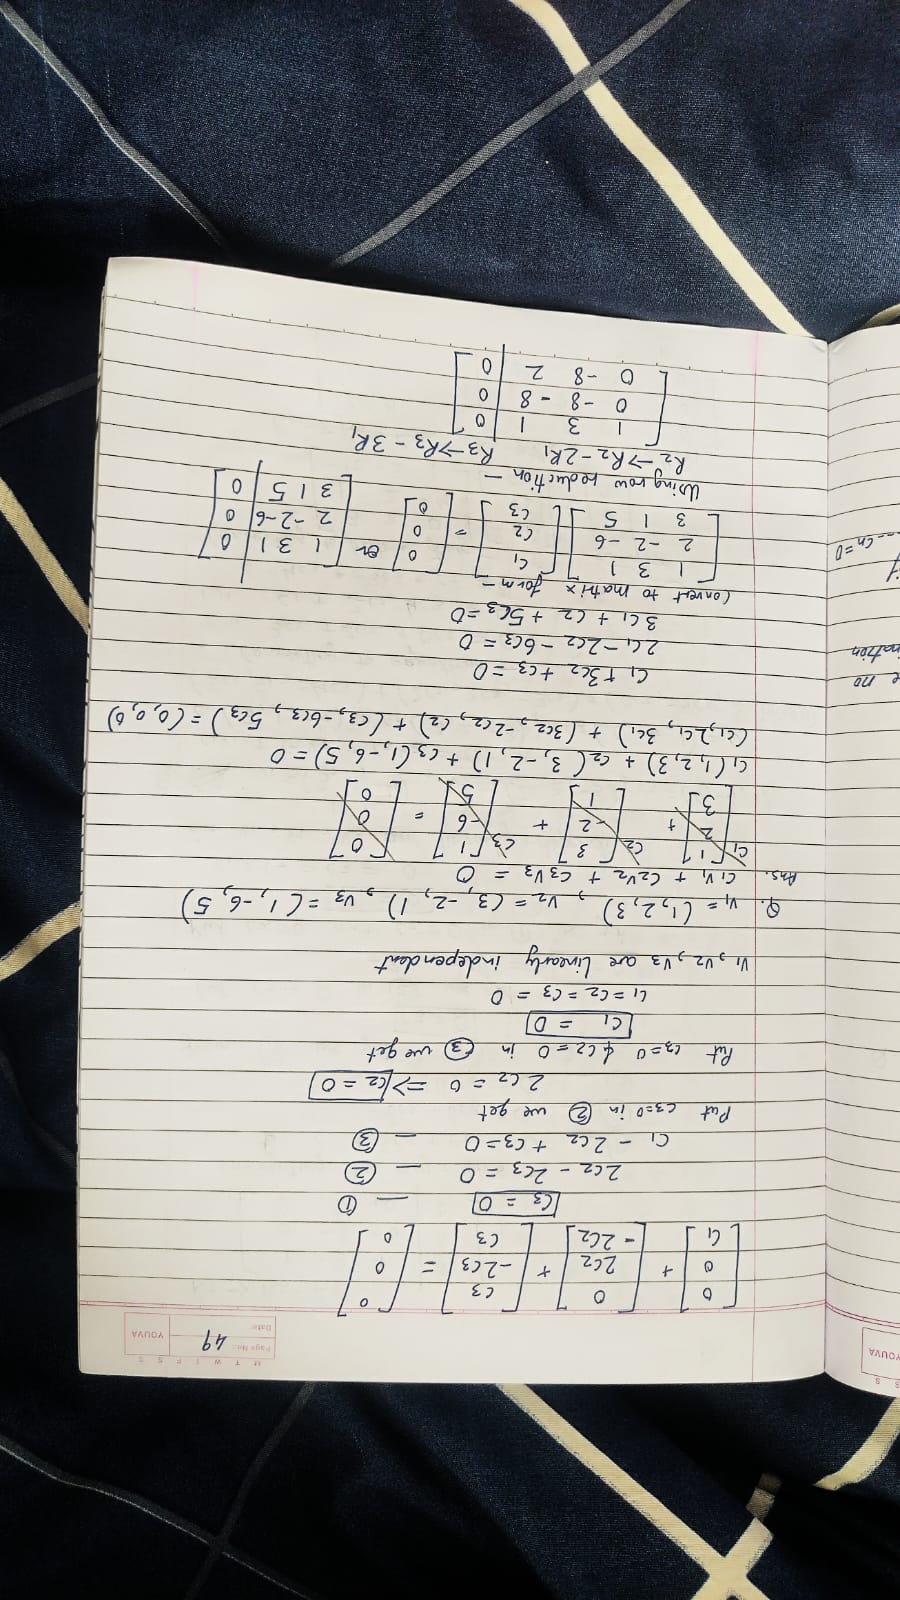 S S
YOUVA
M T W T F S S
Page No.: 49
Date:
YOUVA
[0 0 C1] + [0 2C2 -2C2] + [C3 -2C3 C3] = [0 0 0]
C3 = 0 — ①
2C2 - 2C3 = 0 — ②
C1 - 2C2 + C3 = 0 — ③
Put C3=0 in ② we get
2C2 = 0 => C2 = 0
Put C3=0 & C2=0 in ③ we get
C1 = 0
C1 = C2 = C3 = 0
V1, V2, V3 are linearly independent
Q. V1 = (1, 2, 3), V2 = (3, -2, 1), V3 = (1, -6, 5)
Ans. C1V1 + C2V2 + C3V3 = 0
C1 [1 2 3] + C2 [3 -2 1] + C3 [1 -6 5] = [0 0 0]
C1(1, 2, 3) + C2(3, -2, 1) + C3(1, -6, 5) = 0
(C1, 2C1, 3C1) + (3C2, -2C2, C2) + (C3, -6C3, 5C3) = (0, 0, 0)
C1 + 3C2 + C3 = 0
2C1 - 2C2 - 6C3 = 0
3C1 + C2 + 5C3 = 0
Convert to matrix form -
[1 3 1
2 -2 -6
3 1 5] [C1 C2 C3] = [0 0 0] or [1 3 1 | 0
2 -2 -6 | 0
3 1 5 | 0]
Using row reduction —
R2 → R2 - 2R1 R3 → R3 - 3R1
[1 3 1 | 0
0 -8 -8 | 0
0 -8 2 | 0]
e no
nation
if
... cn = 0